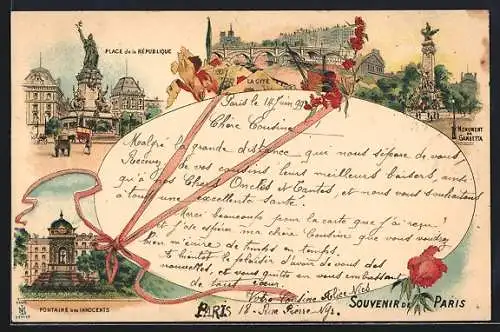 PLACE DE LA RÉPUBLIQUE
LA CITÉ
MONUMENT
DE
GAMBETTA
Paris le 14 Juin 99
Chère Cousine
Malgré la grande distance qui nous sépare de vous
Recevez de vos cousins leurs meilleurs baisers ainsi
qu'à nos Chers Oncles et Tantes, et nous vous souhaitons
à tous une excellente santé.
Merci beaucoup pour la carte que j'ai reçu?
et j'ose espérer ma chère Cousine que vous voudrez
bien m'écrire de temps en temps,
le plaisir d'avoir de vos
nouvelles, et vous quitte en vous embrassant
de tout cœur.
Votre Cousine Alice Nies
18 - Rue Pierre-Nys.
FONTAINE DES INNOCENTS
PARIS
SOUVENIR DE PARIS